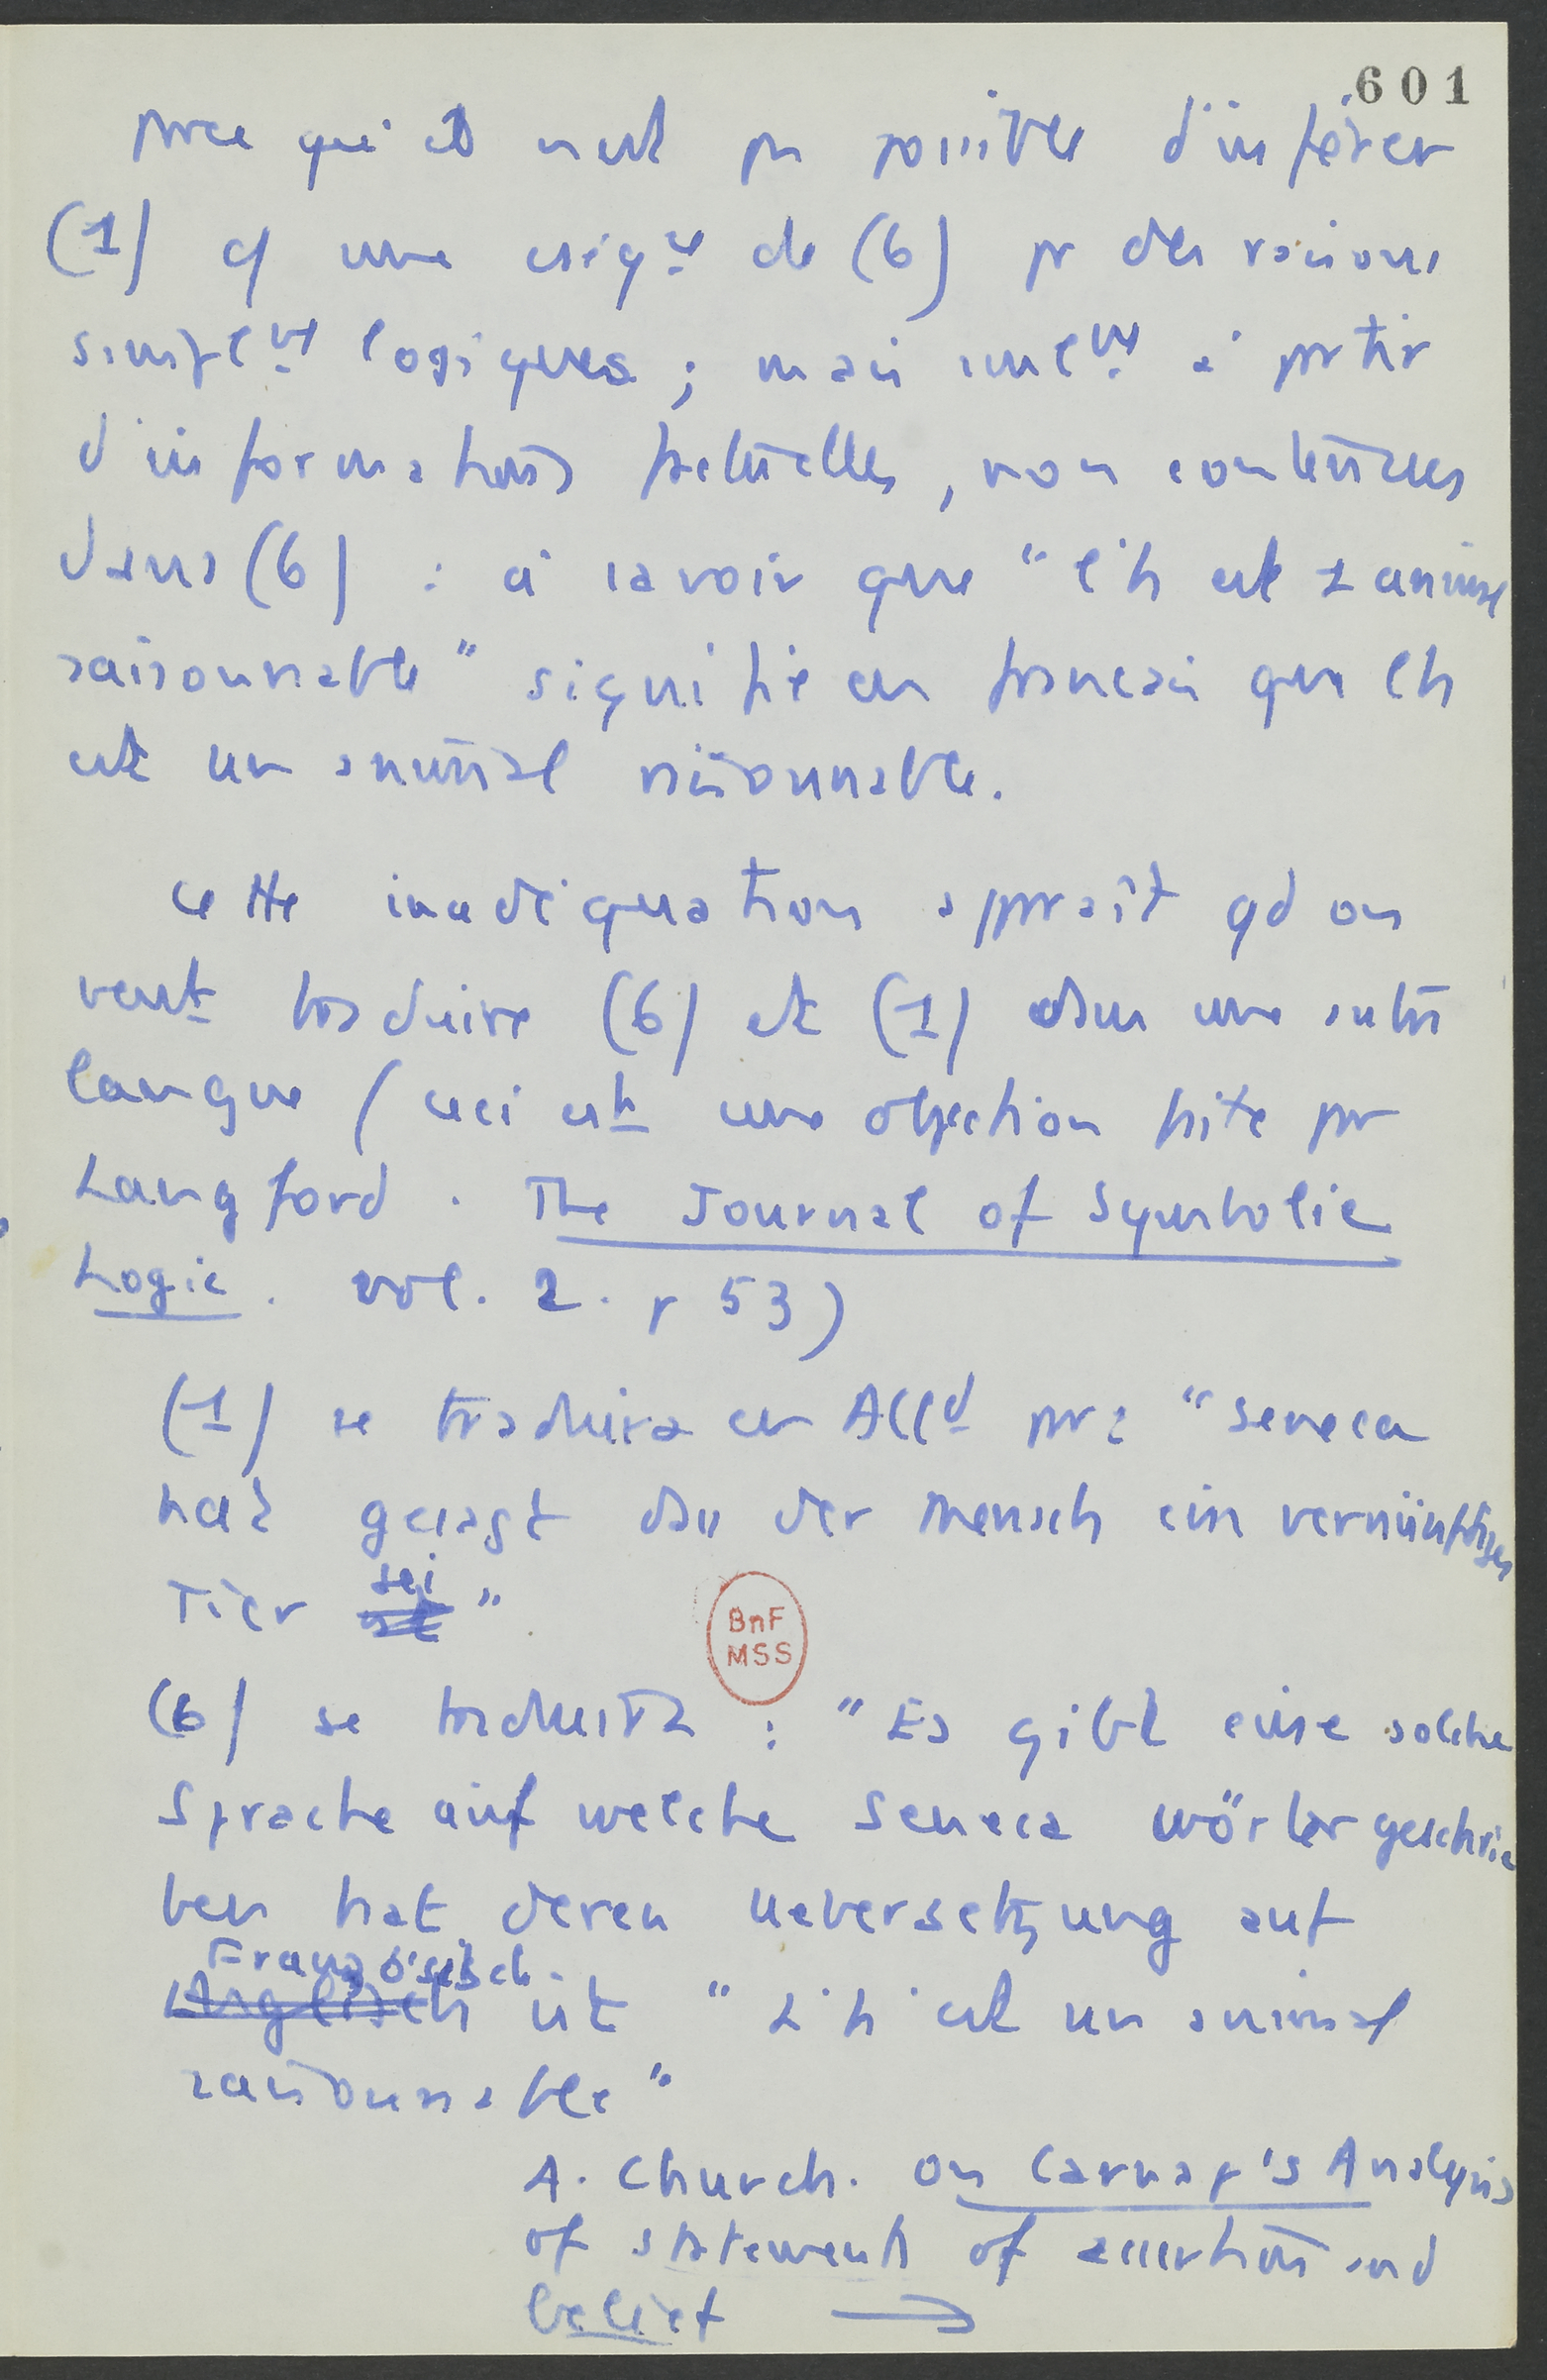 601
parce qu'il n'est pas possible d'inférer
(1) c/ une conséqce de (6) pr des raisons
simplemt logiques ; mais seulemt à partir
d'informations factuelles, non contenues
dans (6) : à savoir que "l'h est 1 animal
raisonnable" signifie en français que l'h
est un animal raisonnable.
Cette inadéquation apparaît qd on
veut traduire (6) et (1) dans une autre
langue (ceci est une objection faite par
Langford. The Journal of Symbolic
Logic. vol. 2. p 53)
(1) se traduira en Alld par : "Seneca
hat gesagt dass der Mensch ein vernünftiges
Tier sei "
(6) se traduira : "Es gibt eine solche
Sprache auf welche Seneca Wörter geschrie
ben hat deren Uebersetzung auf
Französisch
Englisch ist "L'h est un animal
raisonnable"
BnF
MSS
A. Church. On Carnap's Analysis
of statements of assertion and
belief →